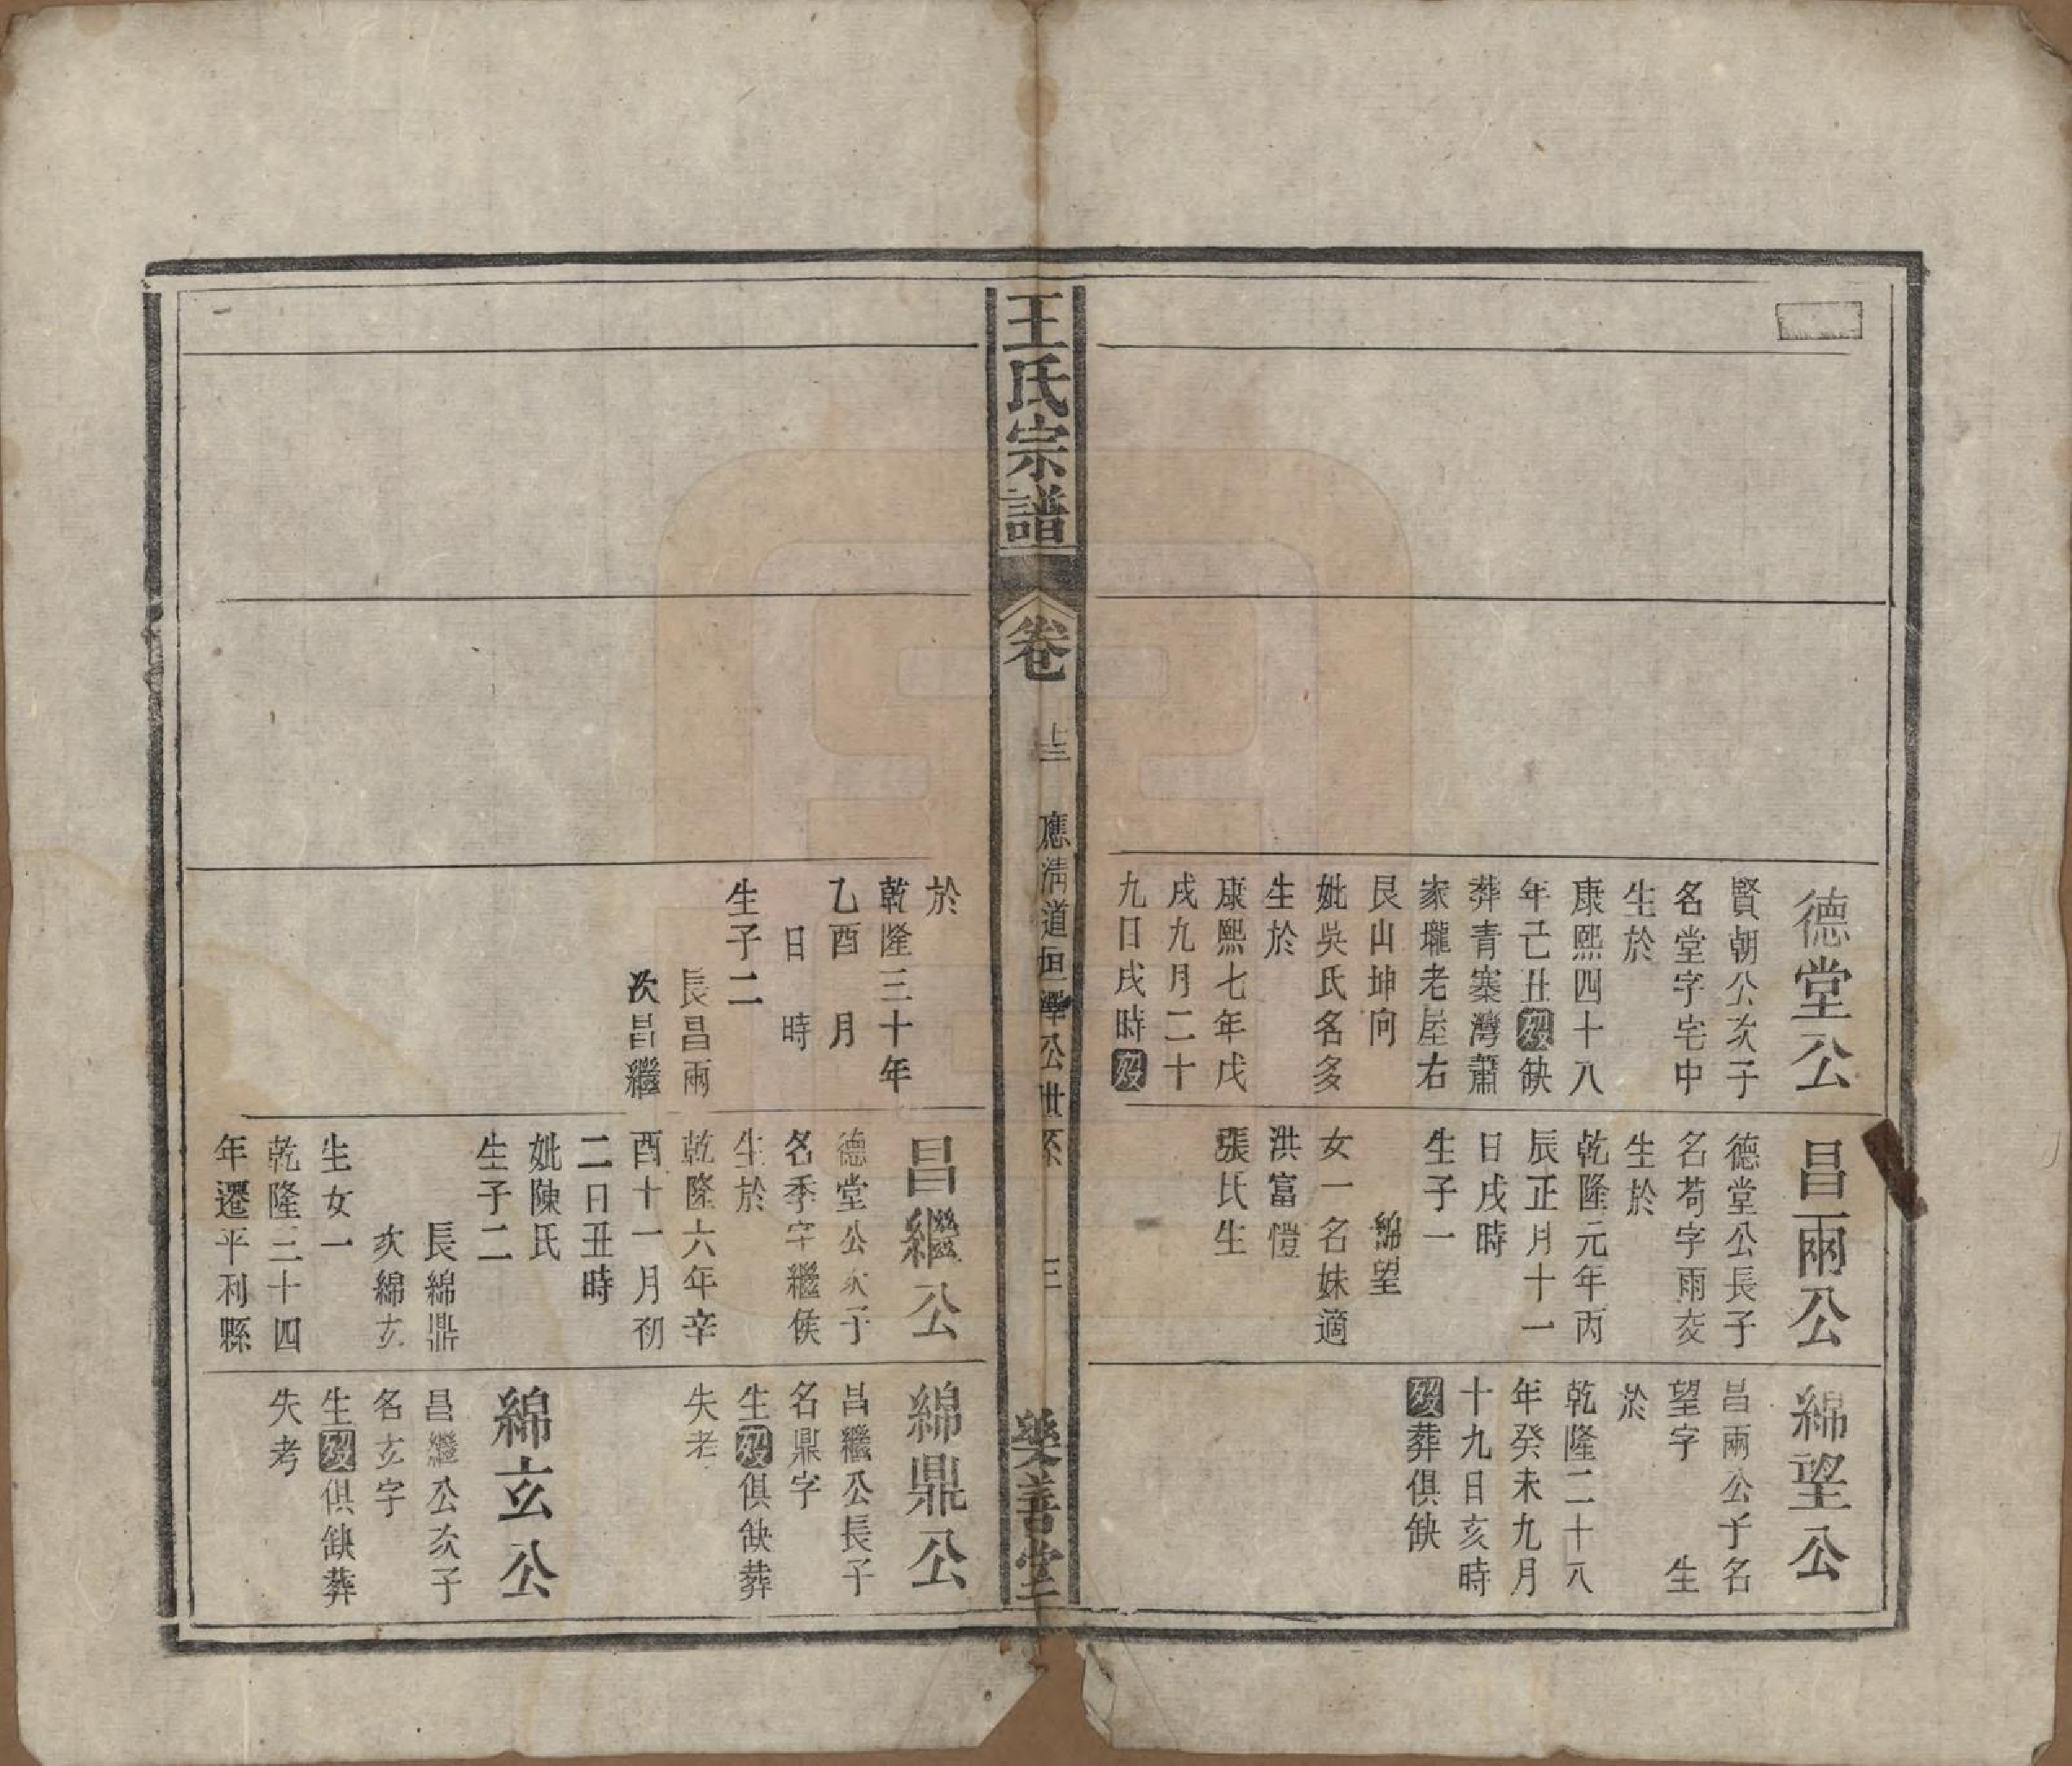 德堂公
賢朝公次子
名堂字宅中
生於
康熙四十八
年己丑歿缺
葬青寨灣蕭
家壠老屋右
艮山坤向
妣吳氏名多
生於
康熙七年戊
戌九月二十
九日戌時歿
昌兩公
德堂公長子
名苟字雨苃
生於
乾隆元年丙
辰正月十一
日戌時
生子一
綿望
女一名妹適
洪富愷
張氏生
綿望公
昌兩公子名
望字 生
於
乾隆二十八
年癸未九月
十九日亥時
歿葬俱缺
王氏宗譜
卷
十三 應清道恒澤公世系 三
樂善堂
於
乾隆三十年
乙酉 月
日 時
生子二
長昌兩
次昌繼
昌繼公
德堂公次子
名季字繼侯
生於
乾隆六年辛
酉十一月初
二日丑時
妣陳氏
生子二
長綿鼎
次綿玄
生女一
乾隆三十四
年遷平利縣
綿鼎公
昌繼公長子
名鼎字
生歿俱缺葬
失考
綿玄公
昌繼公次子
名玄字
生歿俱缺葬
失考